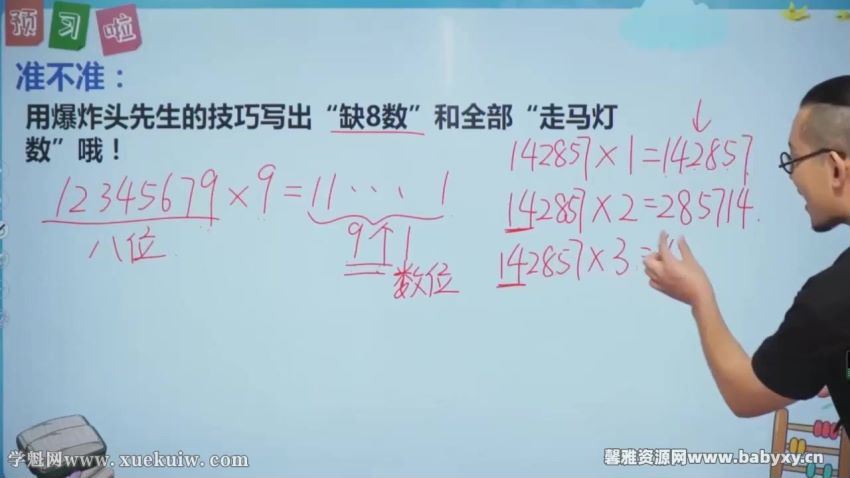 预习啦
准不准：
用爆炸头先生的技巧写出“缺8数”和全部“走马灯
数”哦！
12345679×9=11...1
八位
9个1
数位
142857×1=142857
142857×2=285714.
142857×3=
学魁网www.xuekuiw.com
馨雅资源网www.babyxy.cn